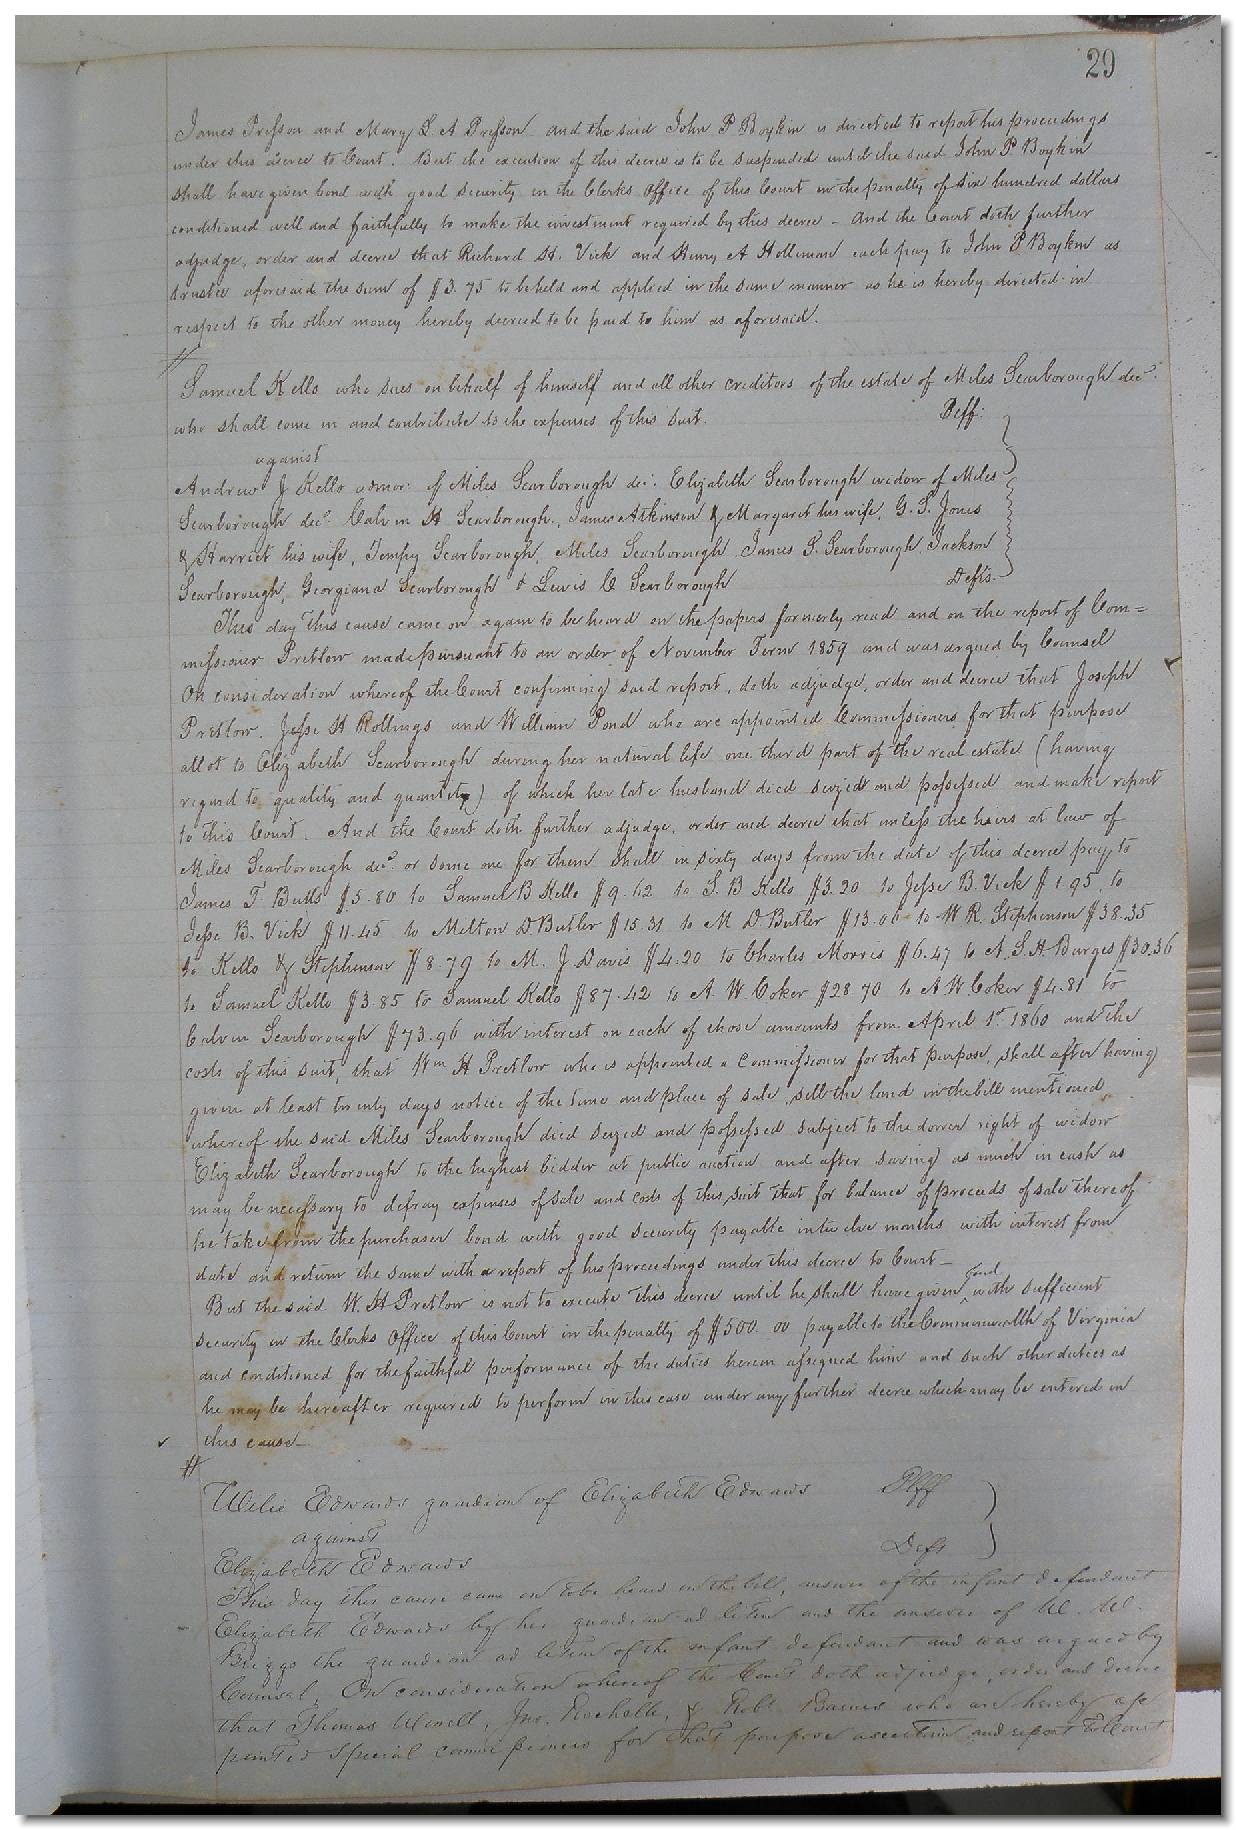 29
James Presson and Mary L A Presson and the said John P Boykin is directed to report his proceedings
under this decree to Court. But the execution of this decree is to be suspended until the said John P Boykin
shall have given bond with good security in the Clerks Office of this Court in the penalty of six hundred dollars
conditioned well and faithfully to make the investment required by this decree – And the Court doth further
adjudge, order and decree that Richard H. Vick and Henry A Holleman each pay to John P Boykin as
trustee aforesaid the sum of $3.75 to be held and applied in the same manner as he is hereby directed in
respect to the other money hereby decreed to be paid to him as aforesaid.
Samuel Kello who sues on behalf of himself and all other creditors of the estate of Miles Scarborough decd
who shall come in and contribute to the expenses of this suit. Plff:
against
Andrew J Kello admor: of Miles Scarborough dec. Elizabeth Scarborough widow of Miles
Scarborough decd. Calvin H Scarborough, James Atkinson & Margaret his wife, G. S. Jones
& Harriet his wife, Tempy Scarborough, Miles Scarborough James S. Scarborough, Jackson
Scarborough, Georgiana Scarborough & Lewis C Scarborough Defts
This day this cause came on again to be heard on the papers formerly read and on the report of Com=
missioner Pretlow made pursuant to an order of November Term 1859 and was argued by Counsel
On consideration whereof the Court confirming said report, doth adjudge, order and decree that Joseph
Pretlow, Jesse H Rollings and William Pond who are appointed Commissioners for that purpose
allot to Elizabeth Scarborough during her natural life one third part of the real estate (having
regard to quality and quantity) of which her late husband died seized and possessed and make report
to this Court. And the Court doth further adjudge, order and decree that unless the heirs at law of
Miles Scarborough decd or some one for them shall in sixty days from the date of this decree pay to
James T Butts $5.80 to Samuel B Kello $9.42 to S. B Kello $3.20 to Jesse B. Vick $1.95, to
Jesse B. Vick $11.45 to Melton D Butler $15.31 to M D Butler $13.06 to W R. Stephenson $38.35
to Kello & Stephenson $8.79 to M. J Davis $4.20 to Charles Morris $6.47 to A. S. H. Burges $30.36
to Samuel Kello $3.85 to Samuel Kello $87.42 to A W Coker $28.70 to A W Coker $4.81 to
Calvin Scarborough $73.96 with interest on each of those amounts from April 1st 1860 and the
costs of this suit, that Wm H Pretlow who is appointed a Commissioner for that purpose, shall after having
given at least twenty days notice of the time and place of sale, sell the land in the bill mentioned
whereof the said Miles Scarborough died seized and possessed subject to the dower right of widow
Elizabeth Scarborough to the highest bidder at public auction and after saving as much in cash as
may be necessary to defray expenses of sale and costs of this suit that for balance of proceeds of sale thereof
he take from the purchaser bond with good security payable in twelve months with interest from
date and return the same with a report of his proceedings under this decree to Court –
But the said W. H Pretlow is not to execute this decree until he shall have given bond with sufficient
security in the Clerks Office of this Court in the penalty of $500.00 payable to the Commonwealth of Virginia
and conditioned for the faithful performance of the duties herein assigned him and such other duties as
he may be hereafter required to perform in this case under any further decree which may be entered in
this cause –
Edwards guardian of Elizabeth Edwards Plff
against
Elizabeth Edwards Deft
This day this cause came on to be heard on the bill, answer of the infant defendant
Elizabeth Edwards by her guardian ad litem and the answer of W. W.
Briggs the guardian ad litem of the infant defendant and was argued by
Counsel, On consideration whereof the Court doth adjudge, order and decree
that Thomas, Jno. Rochelle, & Robt Barnes who are hereby ap
pointed Special commissioners for that purpose ascertain and report to Court